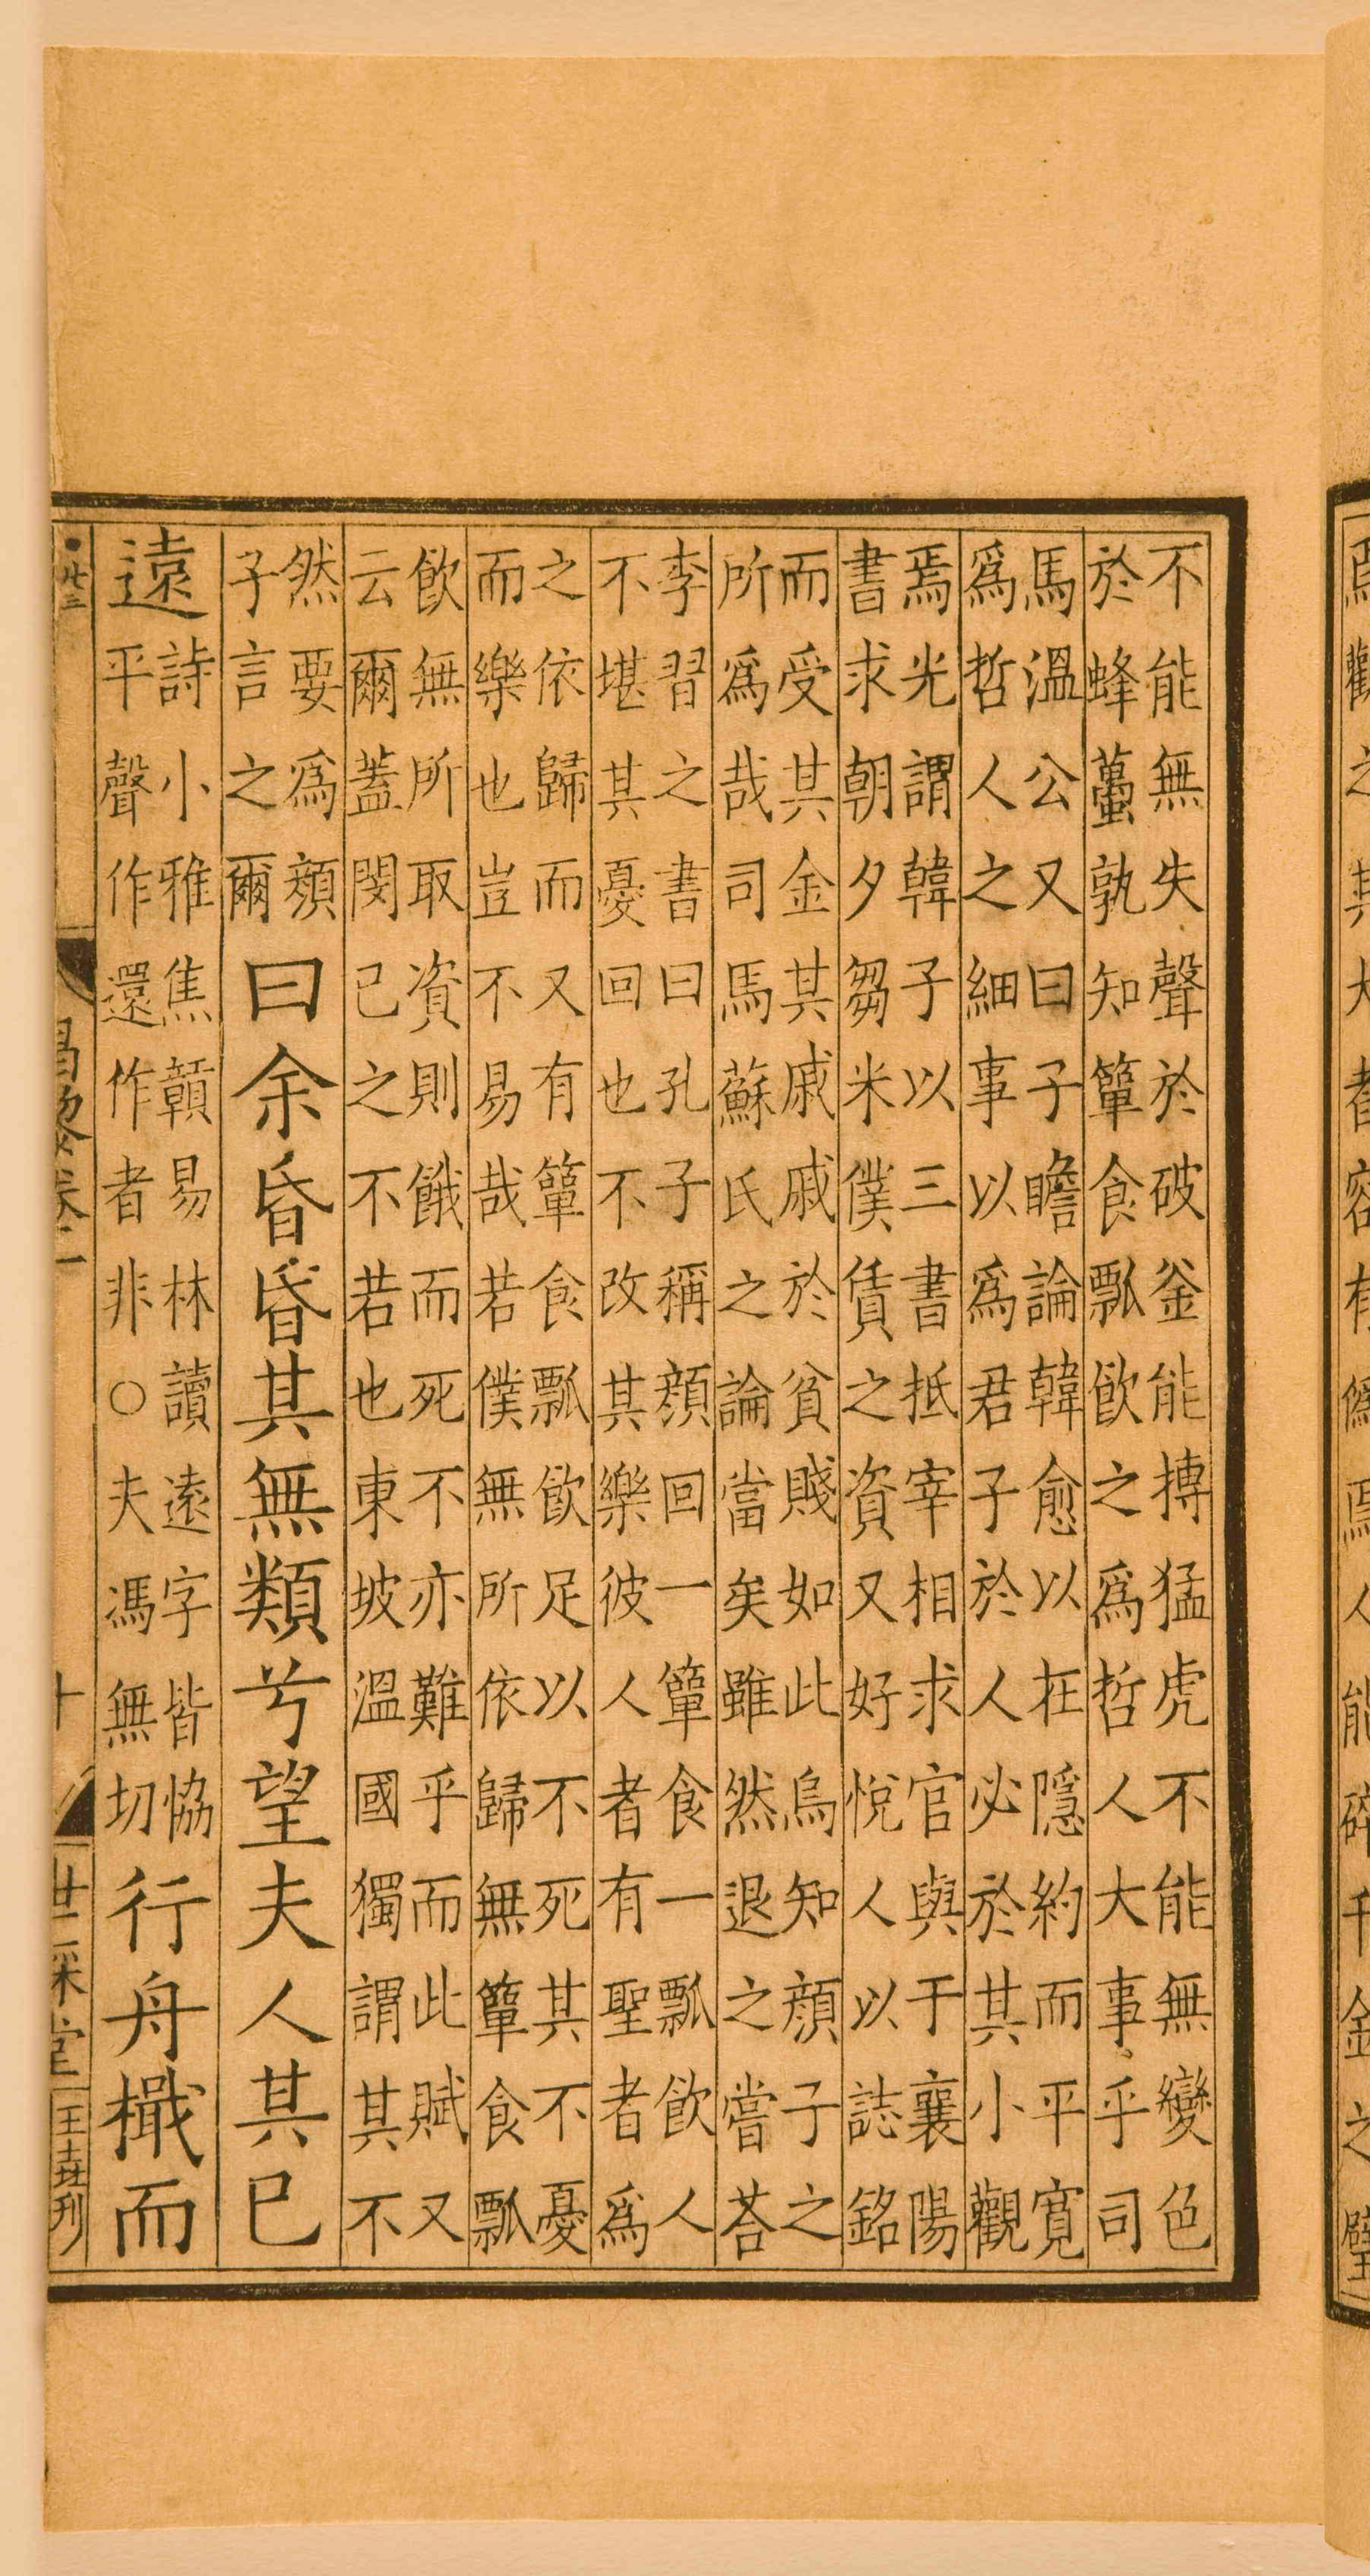 不能無失聲於破釜能搏猛虎不能無變色
於蜂蠆孰知簞食瓢飲之爲哲人大事乎司
馬溫公又曰子瞻論韓愈以在隱約而平寬
爲哲人之細事以爲君子於人必於其小觀
焉光謂韓子以三書抵宰相求官與于襄陽
書求朝夕芻米僕賃之資又好悅人以誌銘
而受其金其戚戚於貧賤如此烏知顔子之
所爲哉司馬蘇氏之論當矣雖然退之嘗荅
李習之書曰孔子稱顔回一簞食一瓢飲人
不堪其憂回也不改其樂彼人者有聖者爲
之依歸而又有簞食瓢飲足以不死其不憂
而樂也豈不易哉若僕無所依歸無簞食瓢
飲無所取資則餓而死不亦難乎而此賦又
云爾蓋閔己之不若也東坡溫國獨謂其不
然要爲顔
子言之爾
曰余昏昏其無類兮望夫人其已
遠
詩小雅焦贛易林讀遠字皆恊
平聲作還作者非○夫馮無切
行舟檝而
廿三
昌黎卷二
十
世綵堂